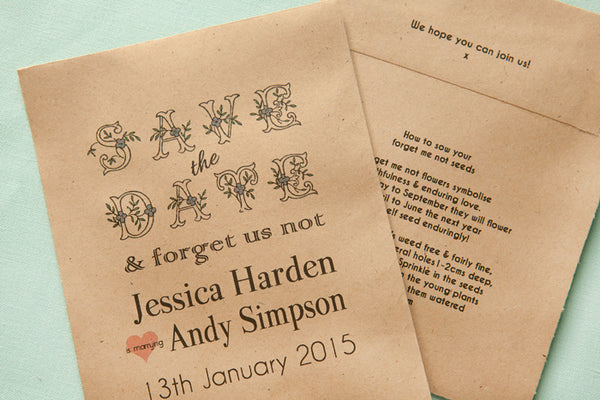 SAVE
the
DATE
& forget us not
Jessica Harden
is marrying Andy Simpson
13th January 2015
We hope you can join us!
x
How to sow your
forget me not seeds
get me not flowers symbolise
thfulness & enduring love.
ay to September they will flower
il to June the next year
elf seed enduringly!
s weed free & fairly fine,
eral holes 1-2cms deep,
Sprinkle in the seeds
the young plants
them watered